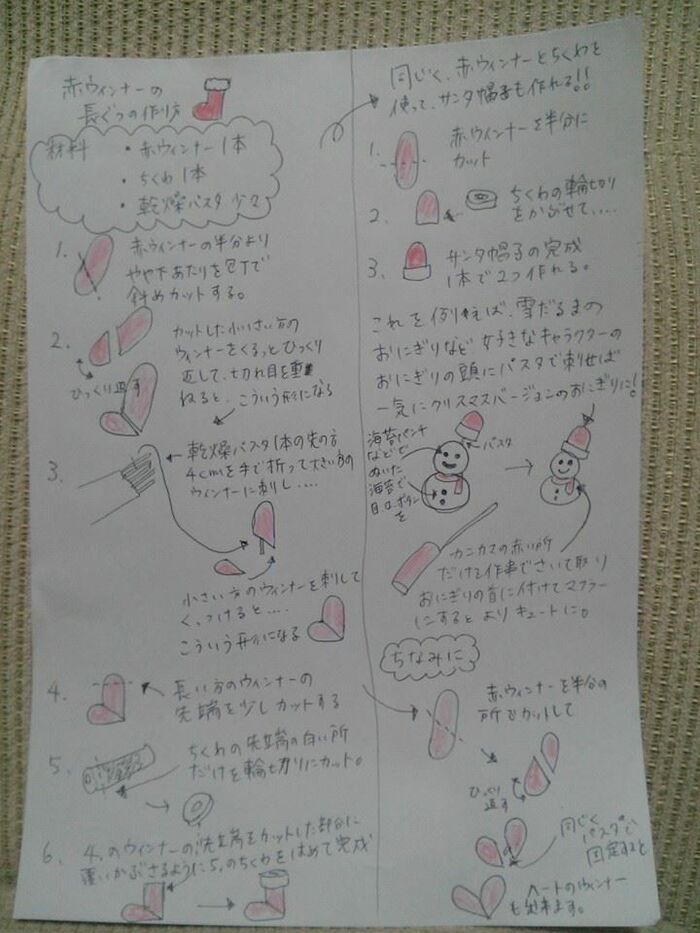 赤ウィンナーの
長ぐつの作り方
材料
・赤ウィンナー1本
・ちくわ1本
・乾燥パスタ少々
1.
赤ウィンナーの半分より
やや下あたりを包丁で
斜めカットする。
2.
カットした小さい方の
ウィンナーをくるっとひっくり
返して、切れ目を重
ねると、こういう形になる
ひっくり返す
3.
乾燥パスタ1本の先の方
4cmを手で折って大きい方の
ウィンナーに刺し....
小さい方のウィンナーを刺して
くっつけると....
こういう形になる
4.
長い方のウィンナーの
先端を少しカットする
5.
ちくわの先端の白い所
だけを輪切りにカット。
6.
4.のウィンナーの先端をカットした部分に
覆いかぶさるように5.のちくわをはめて完成
同じく、赤ウィンナーとちくわを
使って、サンタ帽子も作れる!!
1.
赤ウィンナーを半分に
カット
2.
ちくわの輪切り
をかぶせて....
3.
サンタ帽子の完成
1本で2つ作れる。
これを例えば、雪だるまの
おにぎりなど好きなキャラクターの
おにぎりの頭にパスタで刺せば
一気にクリスマスバージョンのおにぎりに!
海苔パンチ
などで
ぬいた
海苔で
目、口、ボタン
を
パスタ
カニカマの赤い所
だけを作串でさいて取り
おにぎりの首に付けてマフラー
にするとよりキュートに。
ちなみに
赤ウィンナーを半分の
所でカットして
ひっくり
返す
同じく
パスタで
固定すると
ハートのウィンナー
も出来ます。